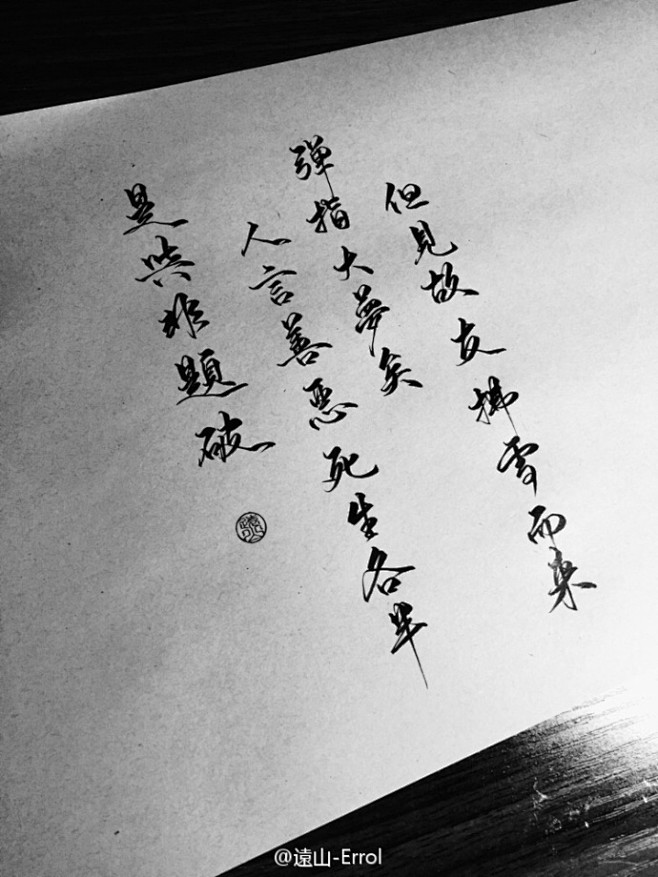 但見故友拂雪而來
彈指大夢矣
人言善惡死生各半
是與非題破
@遠山-Errol